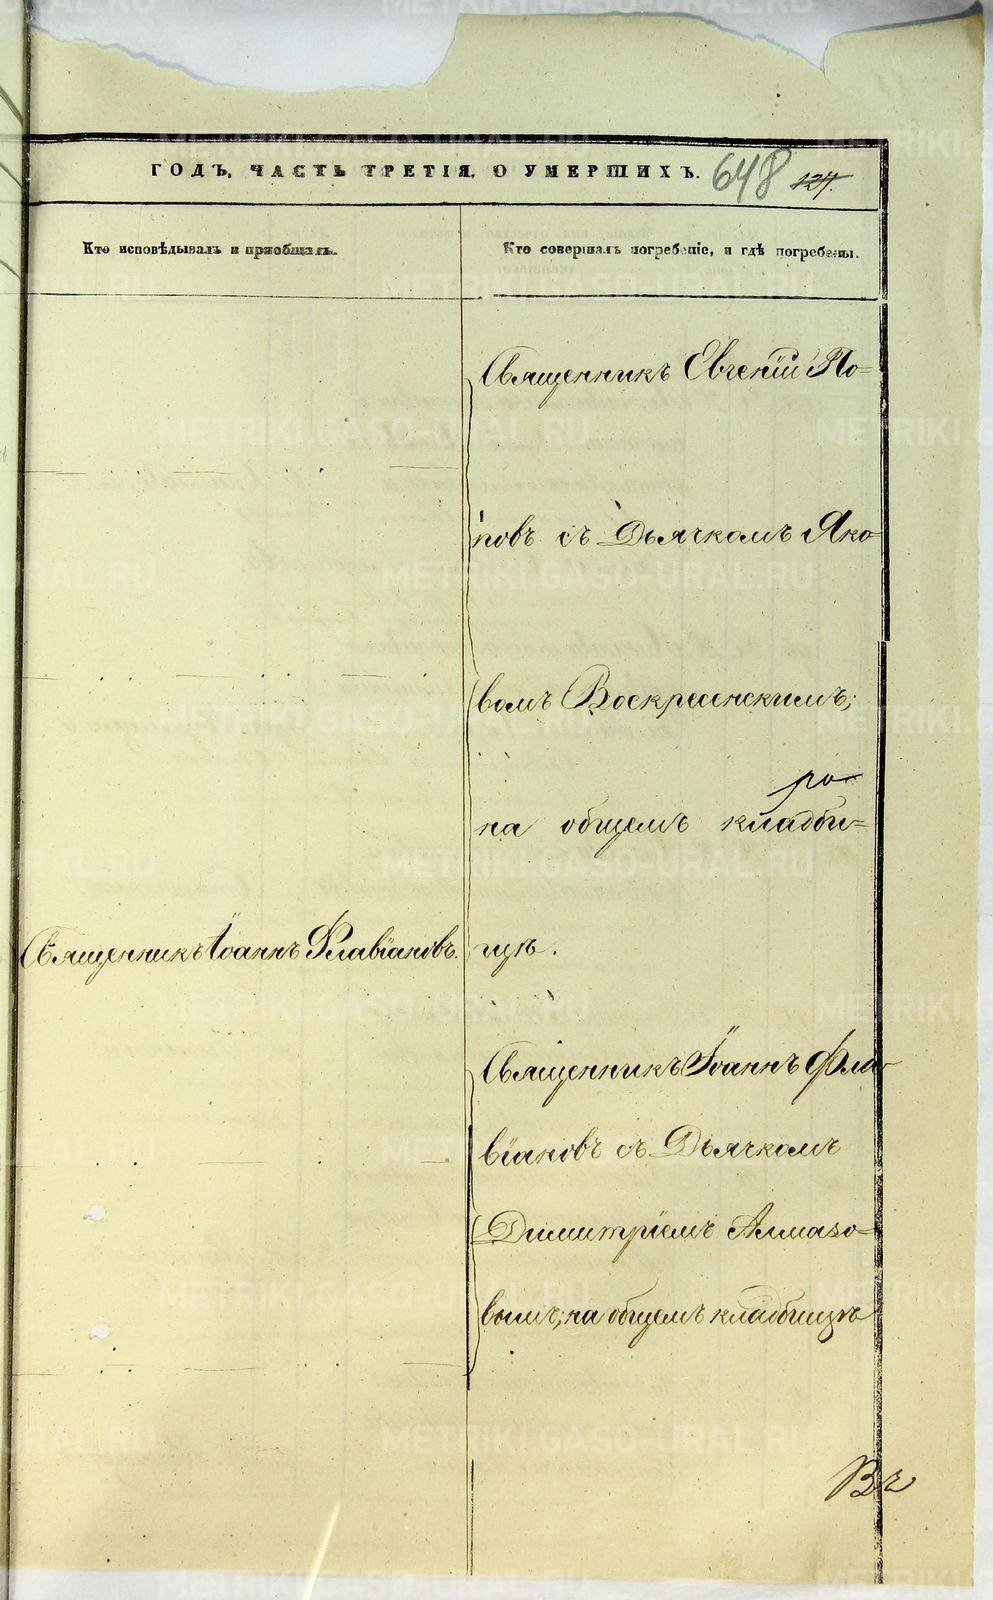 ГОДЪ, ЧАСТЬ ТРЕТІЯ, О УМЕРШИХЪ. 648 127.
Кто исповѣдывалъ и пріобщалъ.
Кто совершалъ погребеніе, и гдѣ погребены.
Священникъ Евгеній По-
повъ съ Дьячкомъ Яко-
вомъ Воскресенскимъ;
на общемъ кладби=
щѣ.
Священникъ Іоаннъ Флавіановъ.
Священникъ Іоаннъ Фла-
віановъ съ Дьячкомъ
Димитріемъ Алмазо-
вымъ; на общемъ кладбищѣ
METRIKI.GASO-URAL.RU